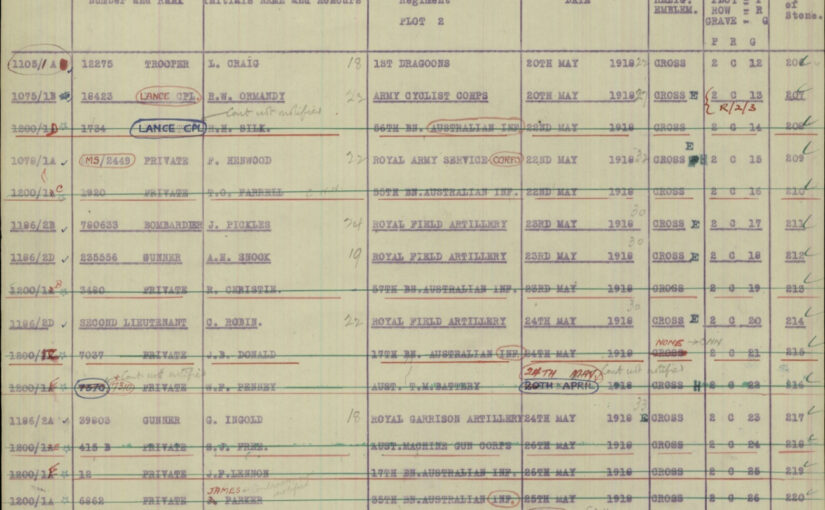 Number and Rank Initials Name and Honours Regiment DATE RELIG. EMBLEM. PLOT = P ROW = R GRAVE = G of Stone.
PLOT 2
P R G
1105/1 A 12275 TROOPER L. CRAIG 18 1ST DRAGOONS 20TH MAY 1918 CROSS 2 C 12
1075/1B 18423 LANCE CPL. E.W. ORMANDY 22 ARMY CYCLIST CORPS 20TH MAY 1918 CROSS E 2 C 13 207
Cont not notified R/2/3
1200/1D 1734 LANCE CPL R.H. SILK. 56TH BN. AUSTRALIAN INF. 22ND MAY 1918 CROSS 2 C 14 208
E
1078/1A MS/2449 PRIVATE F. HENWOOD 22 ROYAL ARMY SERVICE CORPS 22ND MAY 1918 CROSS 2 C 15 209
1200/1 C 1920 PRIVATE T.C. FARRELL 55TH BN.AUSTRALIAN INF. 22ND MAY 1918 CROSS 2 C 16 210
30
1186/2B 780633 BOMBARDIER J. PICKLES 24 ROYAL FIELD ARTILLERY 23RD MAY 1918 CROSS E 2 C 17 211
30
1186/2D 235556 GUNNER A.E. SNOOK 19 ROYAL FIELD ARTILLERY 23RD MAY 1918 CROSS E 2 C 18 212
1200/1 3480 PRIVATE R. CHRISTIE. 57TH BN.AUSTRALIAN INF. 23RD MAY 1918 CROSS 2 C 19 213
30
1186/2D SECOND LIEUTENANT C. ROBIN. 22 ROYAL FIELD ARTILLERY 24TH MAY 1918 CROSS E 2 C 20 214
NONE
1200/1 7037 PRIVATE J.B. DONALD 17TH BN. AUSTRALIAN INF. 24TH MAY 1918 CROSS 2 C 21 215
Cont not notified 24TH MAY Cont not notified
1200/1 7370 7310 PRIVATE W.F. PENSEY AUST. T.M.BATTERY 20TH APRIL 1918 CROSS H 2 C 22 216
33
1186/2A 39803 GUNNER G. INGOLD 18 ROYAL GARRISON ARTILLERY 24TH MAY 1918 E CROSS 2 C 23 217
1200/1 415 B PRIVATE S.J. FREE. AUST.MACHINE GUN CORPS 26TH MAY 1918 CROSS 2 C 24 218
1200/1 F 12 PRIVATE J.F.LENNON 17TH BN.AUSTRALIAN INF. 26TH MAY 1918 CROSS 2 C 25 219
JAMES notified
1200/1A 6862 PRIVATE PARKER 35TH BN.AUSTRALIAN INF. 25TH MAY 1918 CROSS 2 C 26 220